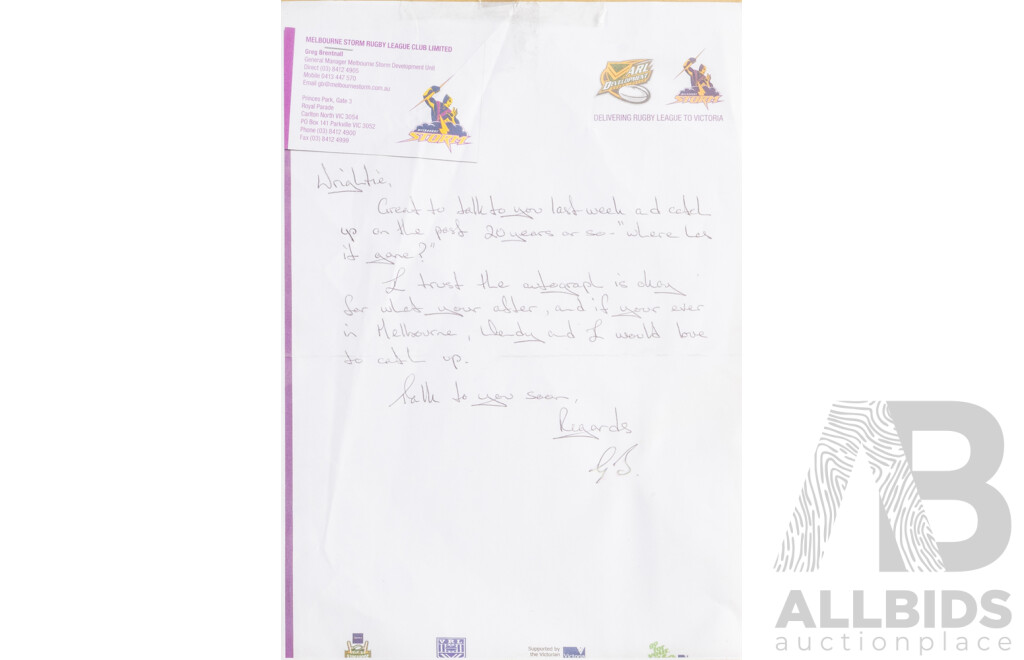 MELBOURNE STORM RUGBY LEAGUE CLUB LIMITED
Greg Brentnall
General Manager Melbourne Storm Development Unit
Direct (03) 8412 4905
Mobile 0413 447 570
Princes Park, Gate 7
Royal Parade
Carlton North VIC 3054
PO Box 141 Parkville VIC 3052
Phone (03) 8412 4900
Fax (03) 8412 4999
MELBOURNE
STORM
ARL
DEVELOPMENT
STORM
DELIVERING RUGBY LEAGUE TO VICTORIA
Wrightie,
Great to talk to you last week and catch
up on the past 20 years or so - "where has
it gone?"
I trust the autograph is okay
for what your after, and if your ever
in Melbourne, Wendy and I would love
to catch up.
Talk to you soon,
Regards
GB.
VRL
Supported by
the Victorian
AB
ALLBIDS
auctionplace